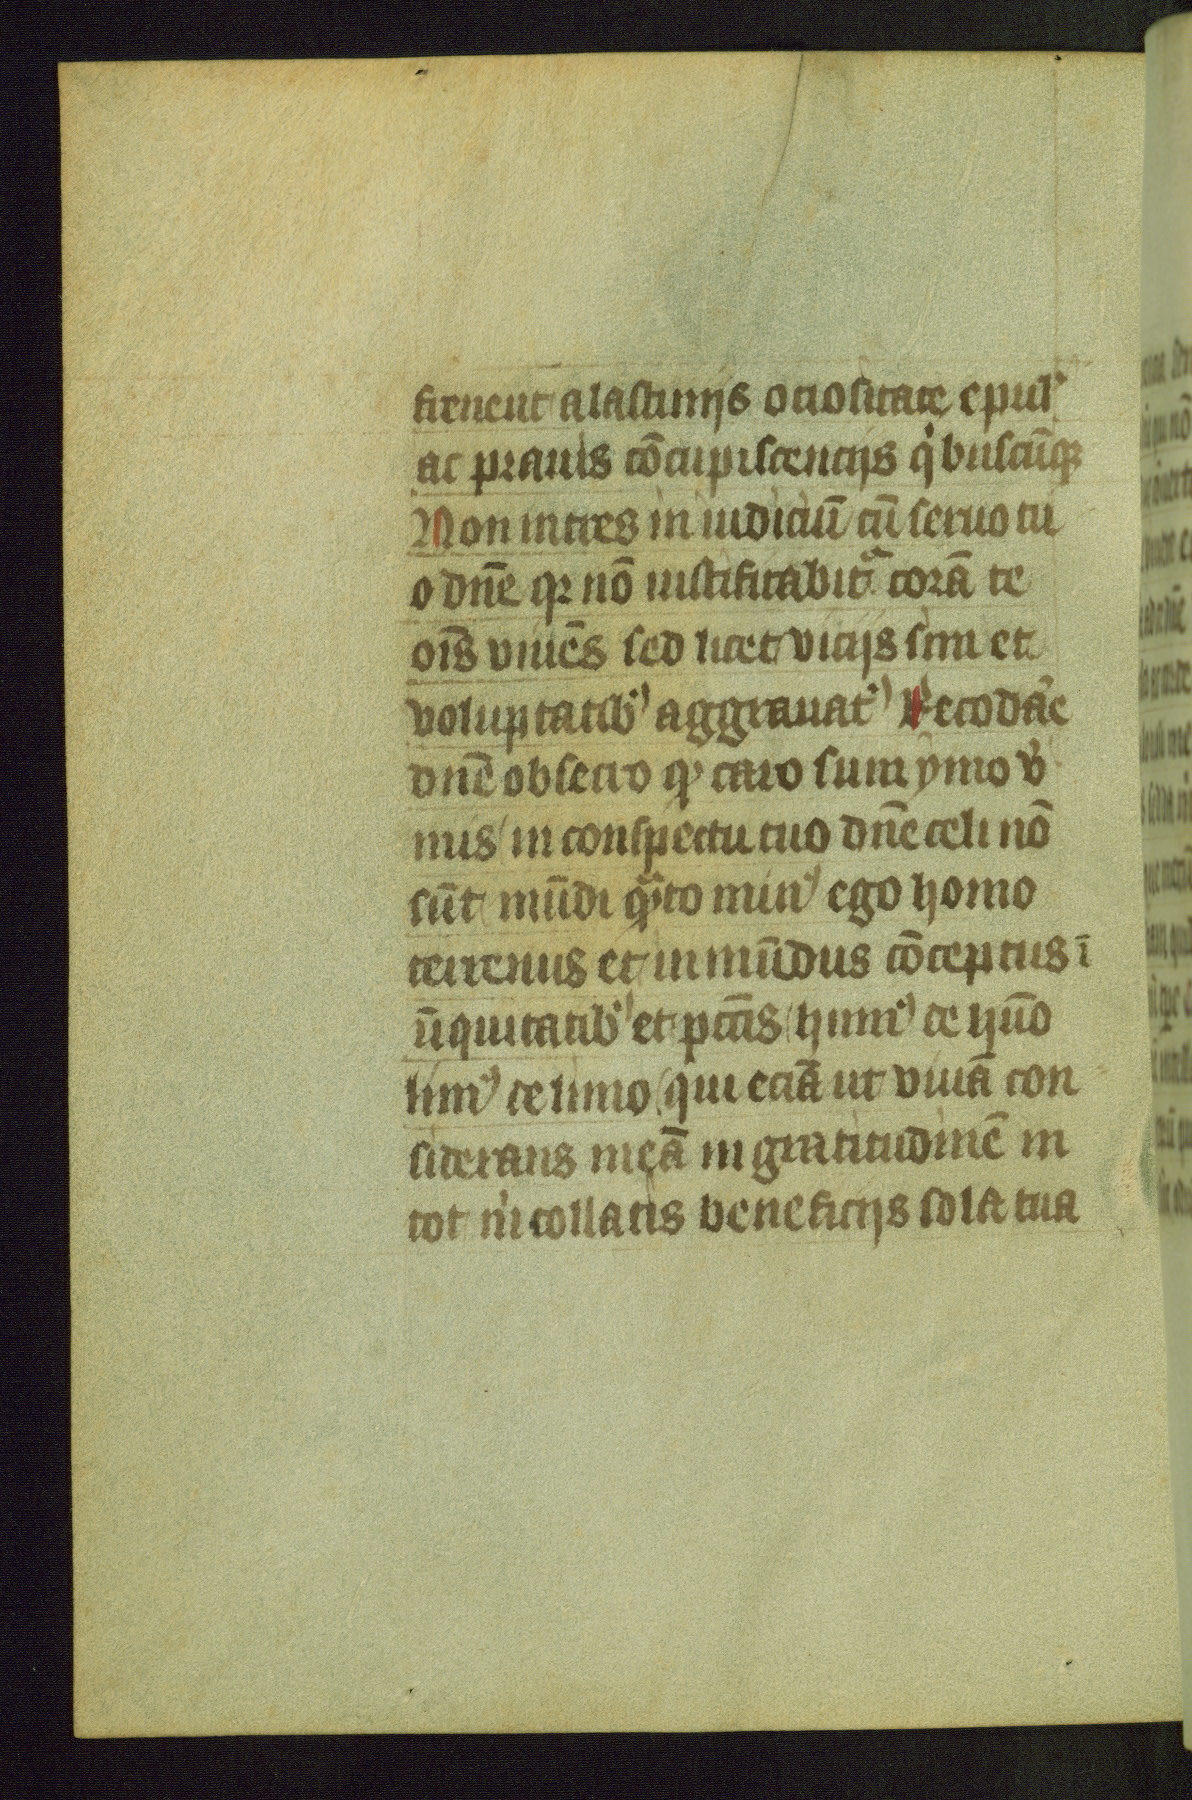 firnent a lasciuijs ociositate epul᷒
ac prauis cōcupiscencijs qͥbuscūqꝫ
Non intres in iudiciū cū seruo tu
o dn̄e qꝛ nō iustificabitᷓ corā te
oīs viuēs sed licet vicijs sim et
voluptatib᷒ aggrauat᷒ Recodāe
dn̄e obsecro qꝫ caro sum ymo v̓
mis in conspectu tuo dn̄e celi nō
sūt mūdi qᷓto min᷒ ego homo
terrenus et inmūdus cōceptus ī
īiquitatib᷒ et pctīs hum᷒ de hūo
lim᷒ de limo qui eciā ut viuā con
siderans meā ingratitudinē in
tot m̓ collatis beneficijs sola tua